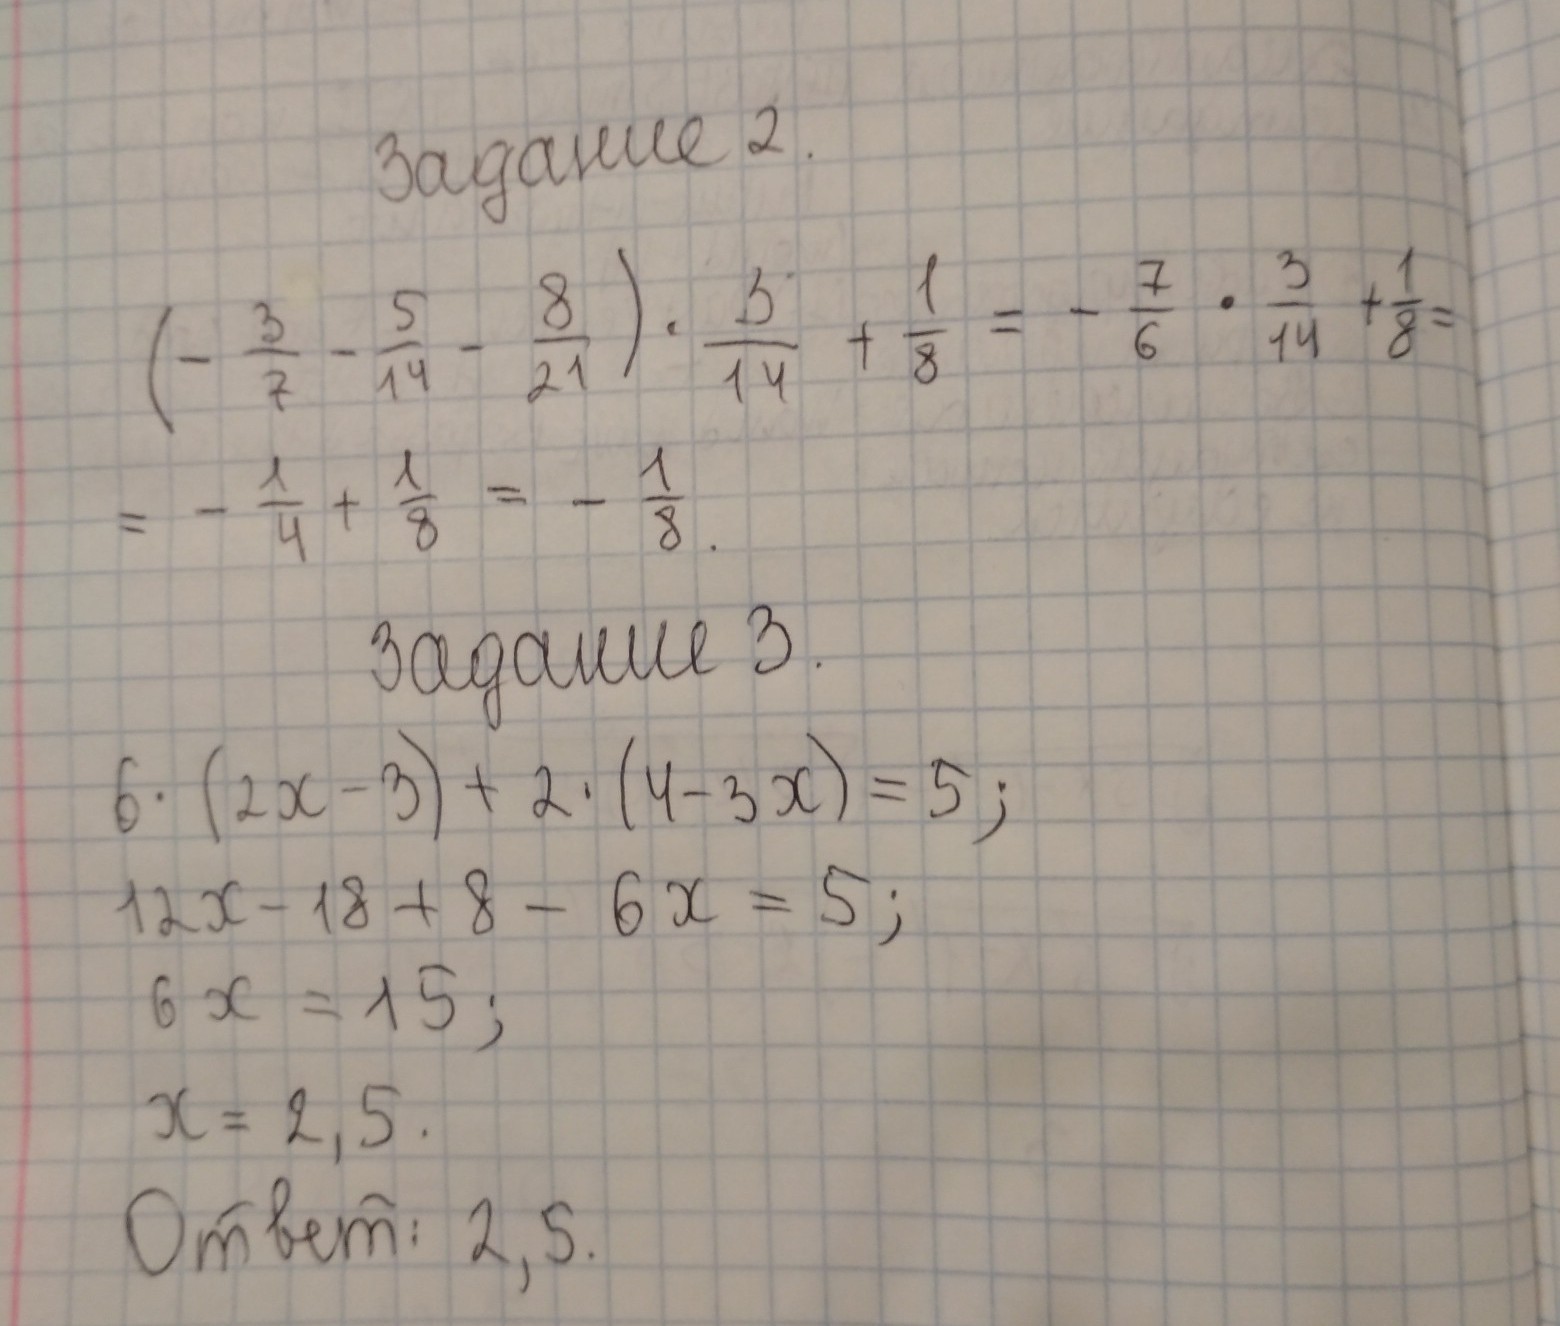 Задание 2.
(- 3/7 - 5/14 - 8/21) · 3/14 + 1/8 = - 7/6 · 3/14 + 1/8 =
= - 1/4 + 1/8 = - 1/8.
Задание 3.
6 · (2x - 3) + 2 · (4 - 3x) = 5;
12x - 18 + 8 - 6x = 5;
6x = 15;
x = 2,5.
Ответ: 2,5.